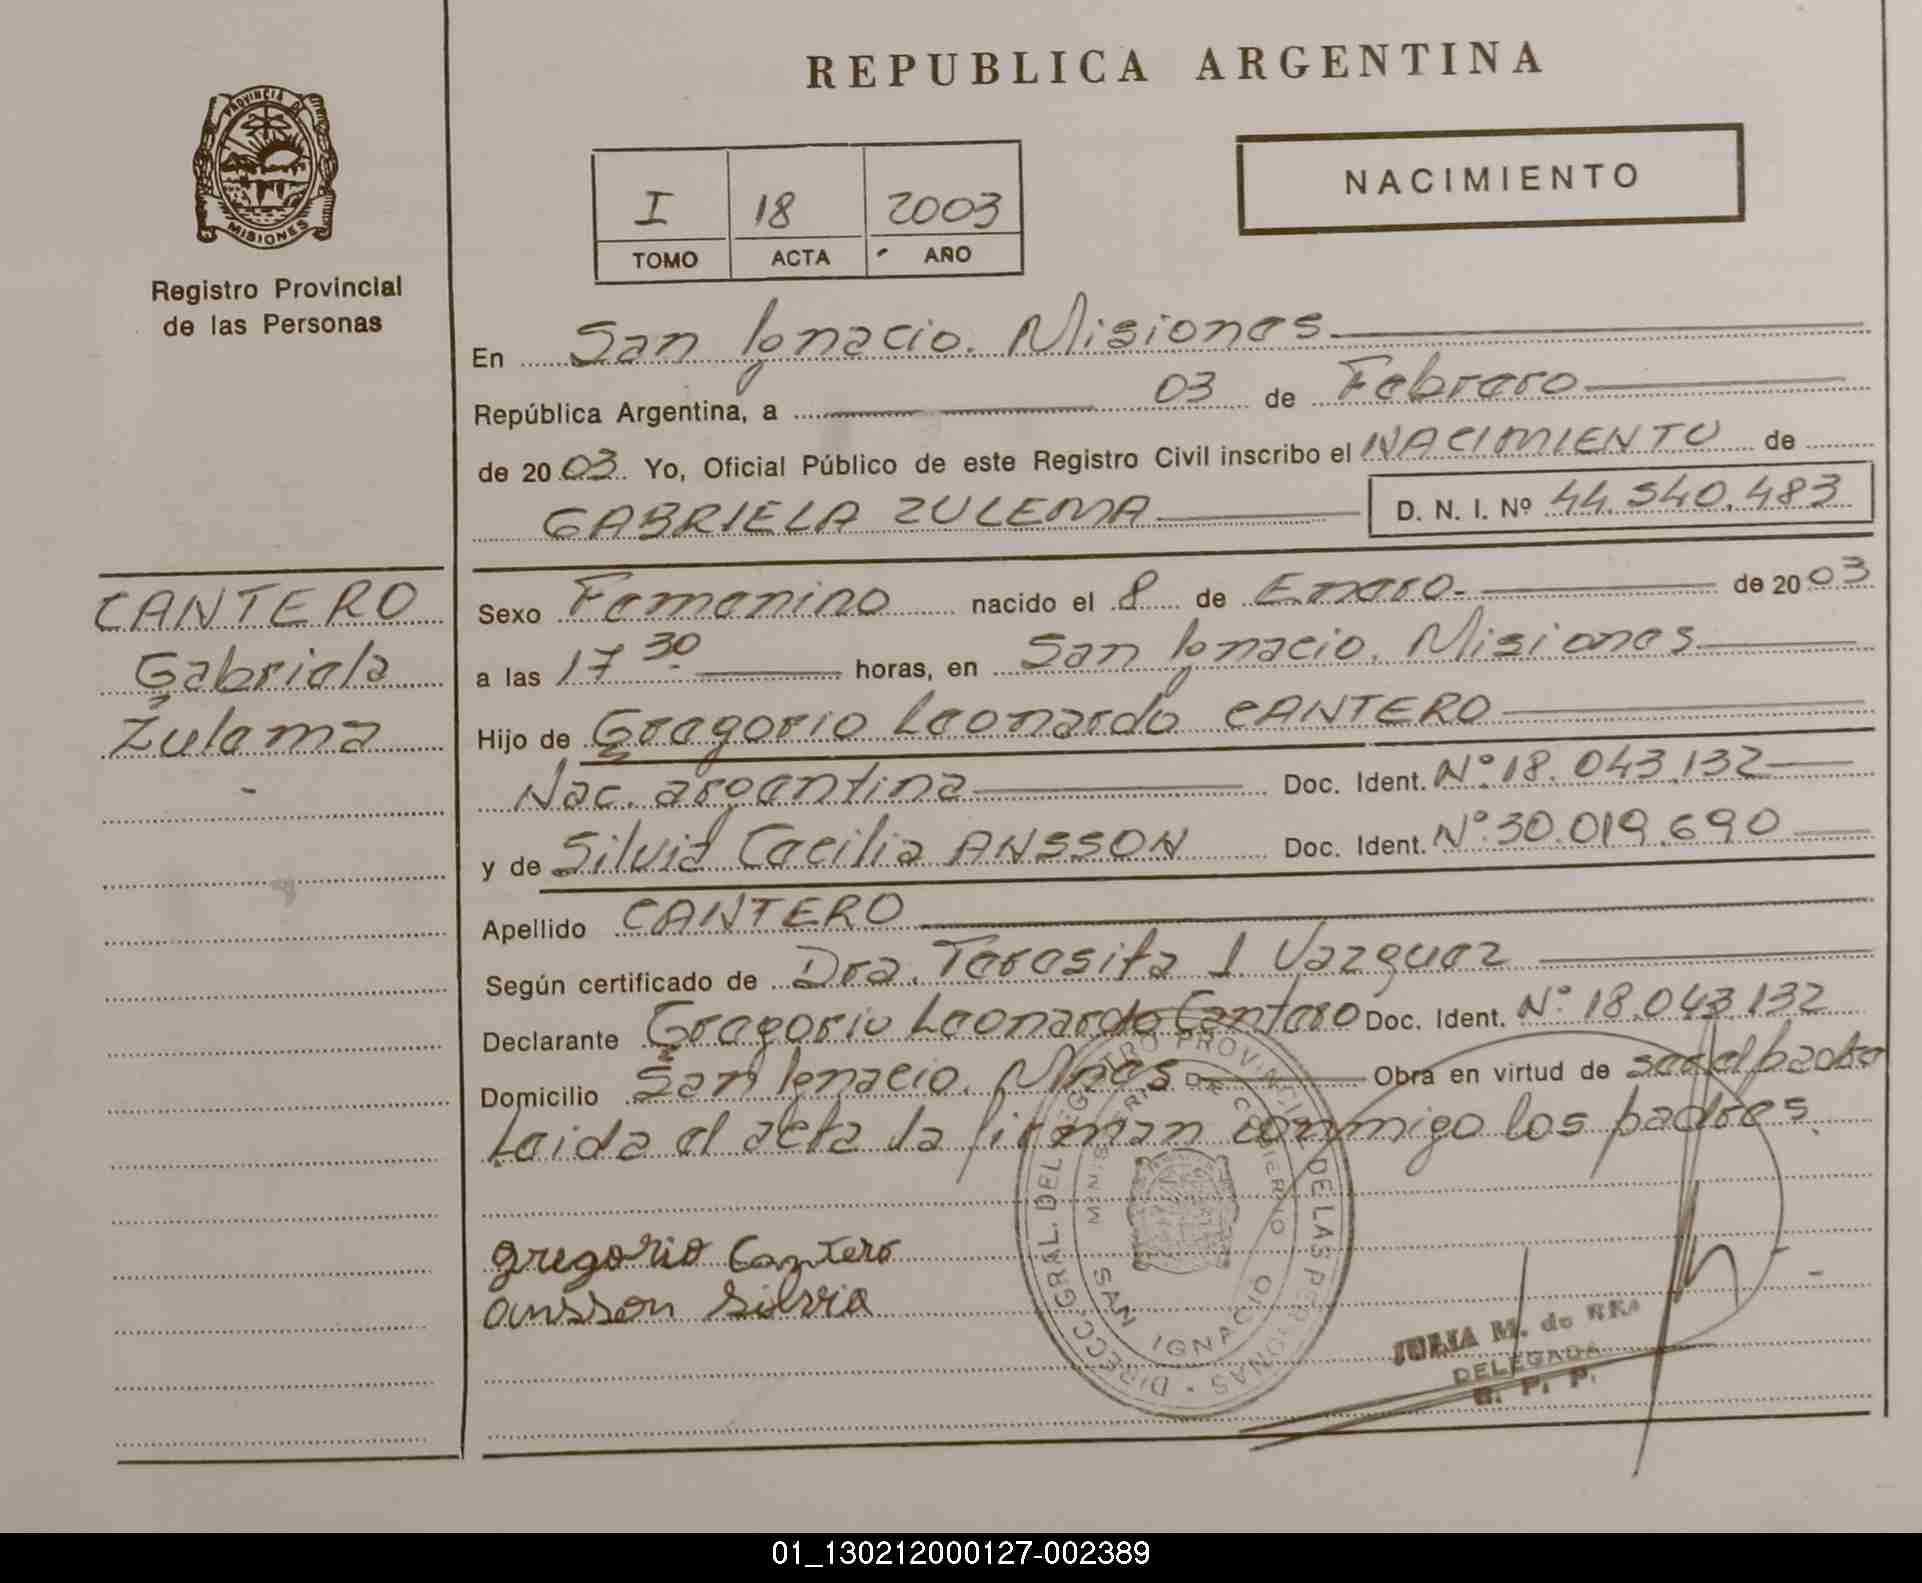 REPUBLICA ARGENTINA
PROVINCIA DE
MISIONES
Registro Provincial
de las Personas
I 18 2003
TOMO ACTA AÑO
NACIMIENTO
En San Ignacio. Misiones
República Argentina, a 03 de Febrero
de 2003 Yo, Oficial Público de este Registro Civil inscribo el NACIMIENTO de
GABRIELA ZULEMA D. N. I. Nº 44.540.483
CANTERO
Gabriela
Zulema
Sexo Femenino nacido el 8 de Enero. de 2003
a las 17 30 horas, en San Ignacio. Misiones
Hijo de Gregorio Leonardo CANTERO
Nac. argentina Doc. Ident. Nº 18.043.132
y de Silvia Cecilia ANSSON Doc. Ident. Nº 30.019.690
Apellido CANTERO
Según certificado de Dra. Teresita I Vazquez
Declarante Gregorio Leonardo Cantero Doc. Ident. Nº 18.043.132
Domicilio San Ignacio. Mnes Obra en virtud de ser el padre
Leida el acta la firman conmigo los padres.
gregorio Cantero
ansson silvia
DIRECC. GRAL. DEL REGISTRO PROVINCIAL DE LAS PERSONAS
MINISTERIO DE GOBIERNO
SAN IGNACIO
M. de
DELEGADA
R. P. P.
01_130212000127-002389